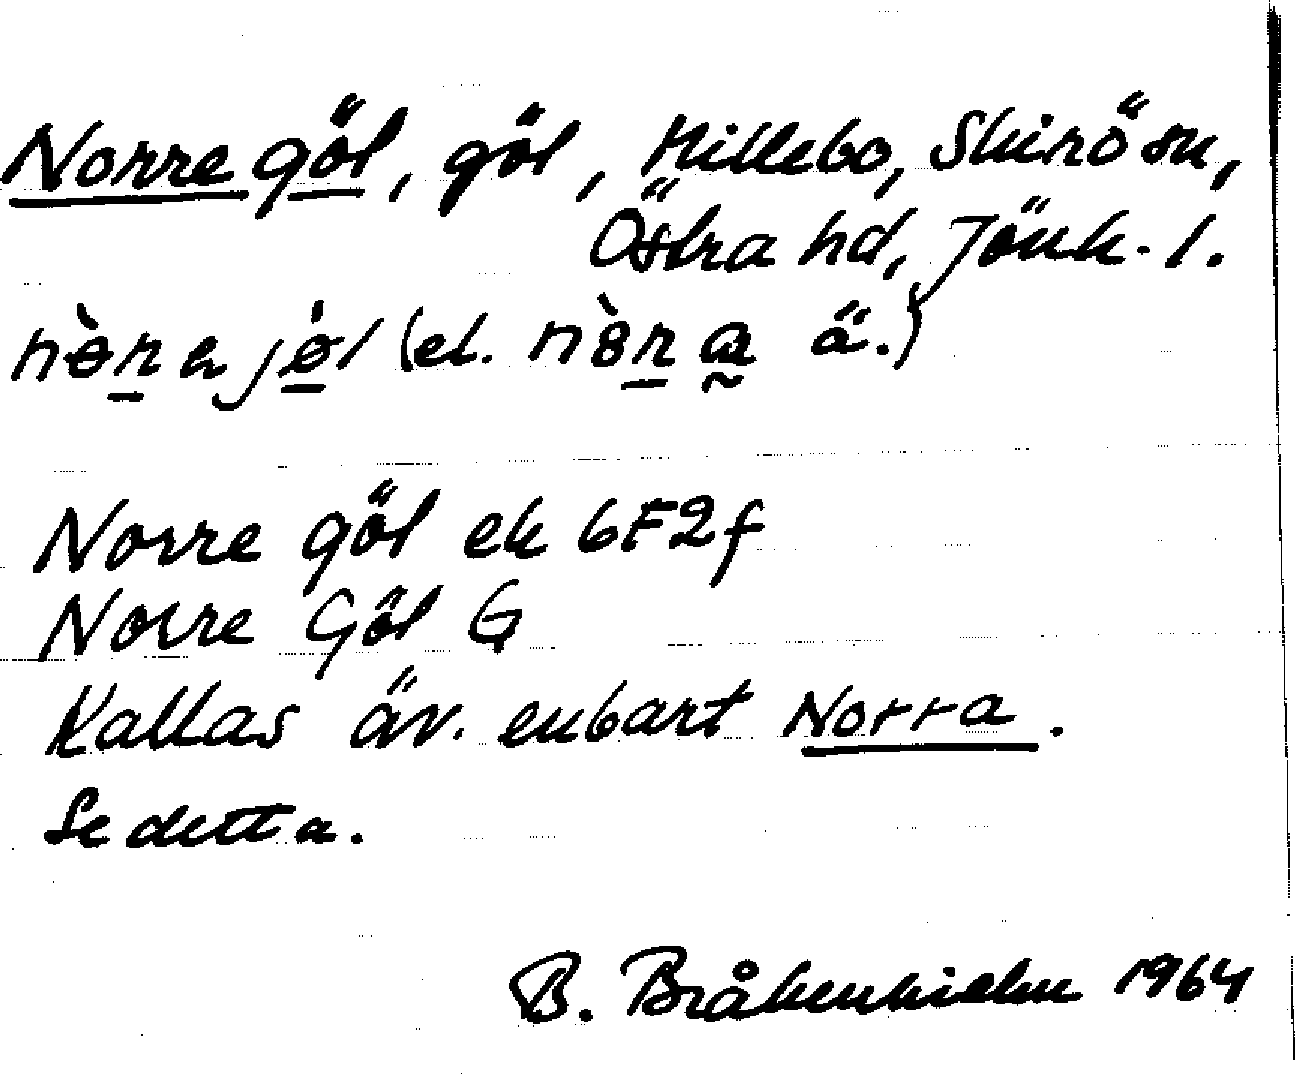 Norre göl, göl, Hillebo, Skirö sn,
Östra hd, Jönk. l.
Norre göl ek 6F2f
Norre Göl G
Kallas äv. enbart Norra.
Se detta.
B. Bråkenhielm 1964